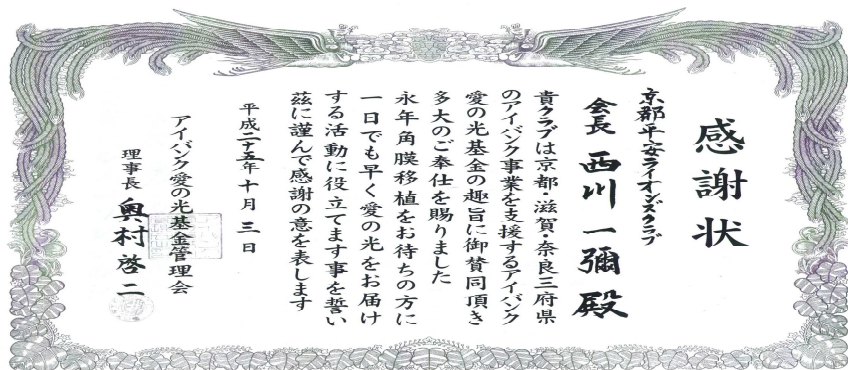 感謝状
京都平安ライオンズクラブ
会長 西川一彌殿
貴クラブは京都・滋賀・奈良三府県
のアイバンク事業を支援するアイバンク
愛の光基金の趣旨に御賛同頂き
多大のご奉仕を賜りました
永年角膜移植をお待ちの方に
一日でも早く愛の光をお届け
する活動に役立てます事を誓い
茲に謹んで感謝の意を表します
平成二十五年十月三日
アイバンク愛の光基金管理会
理事長 奥村啓二